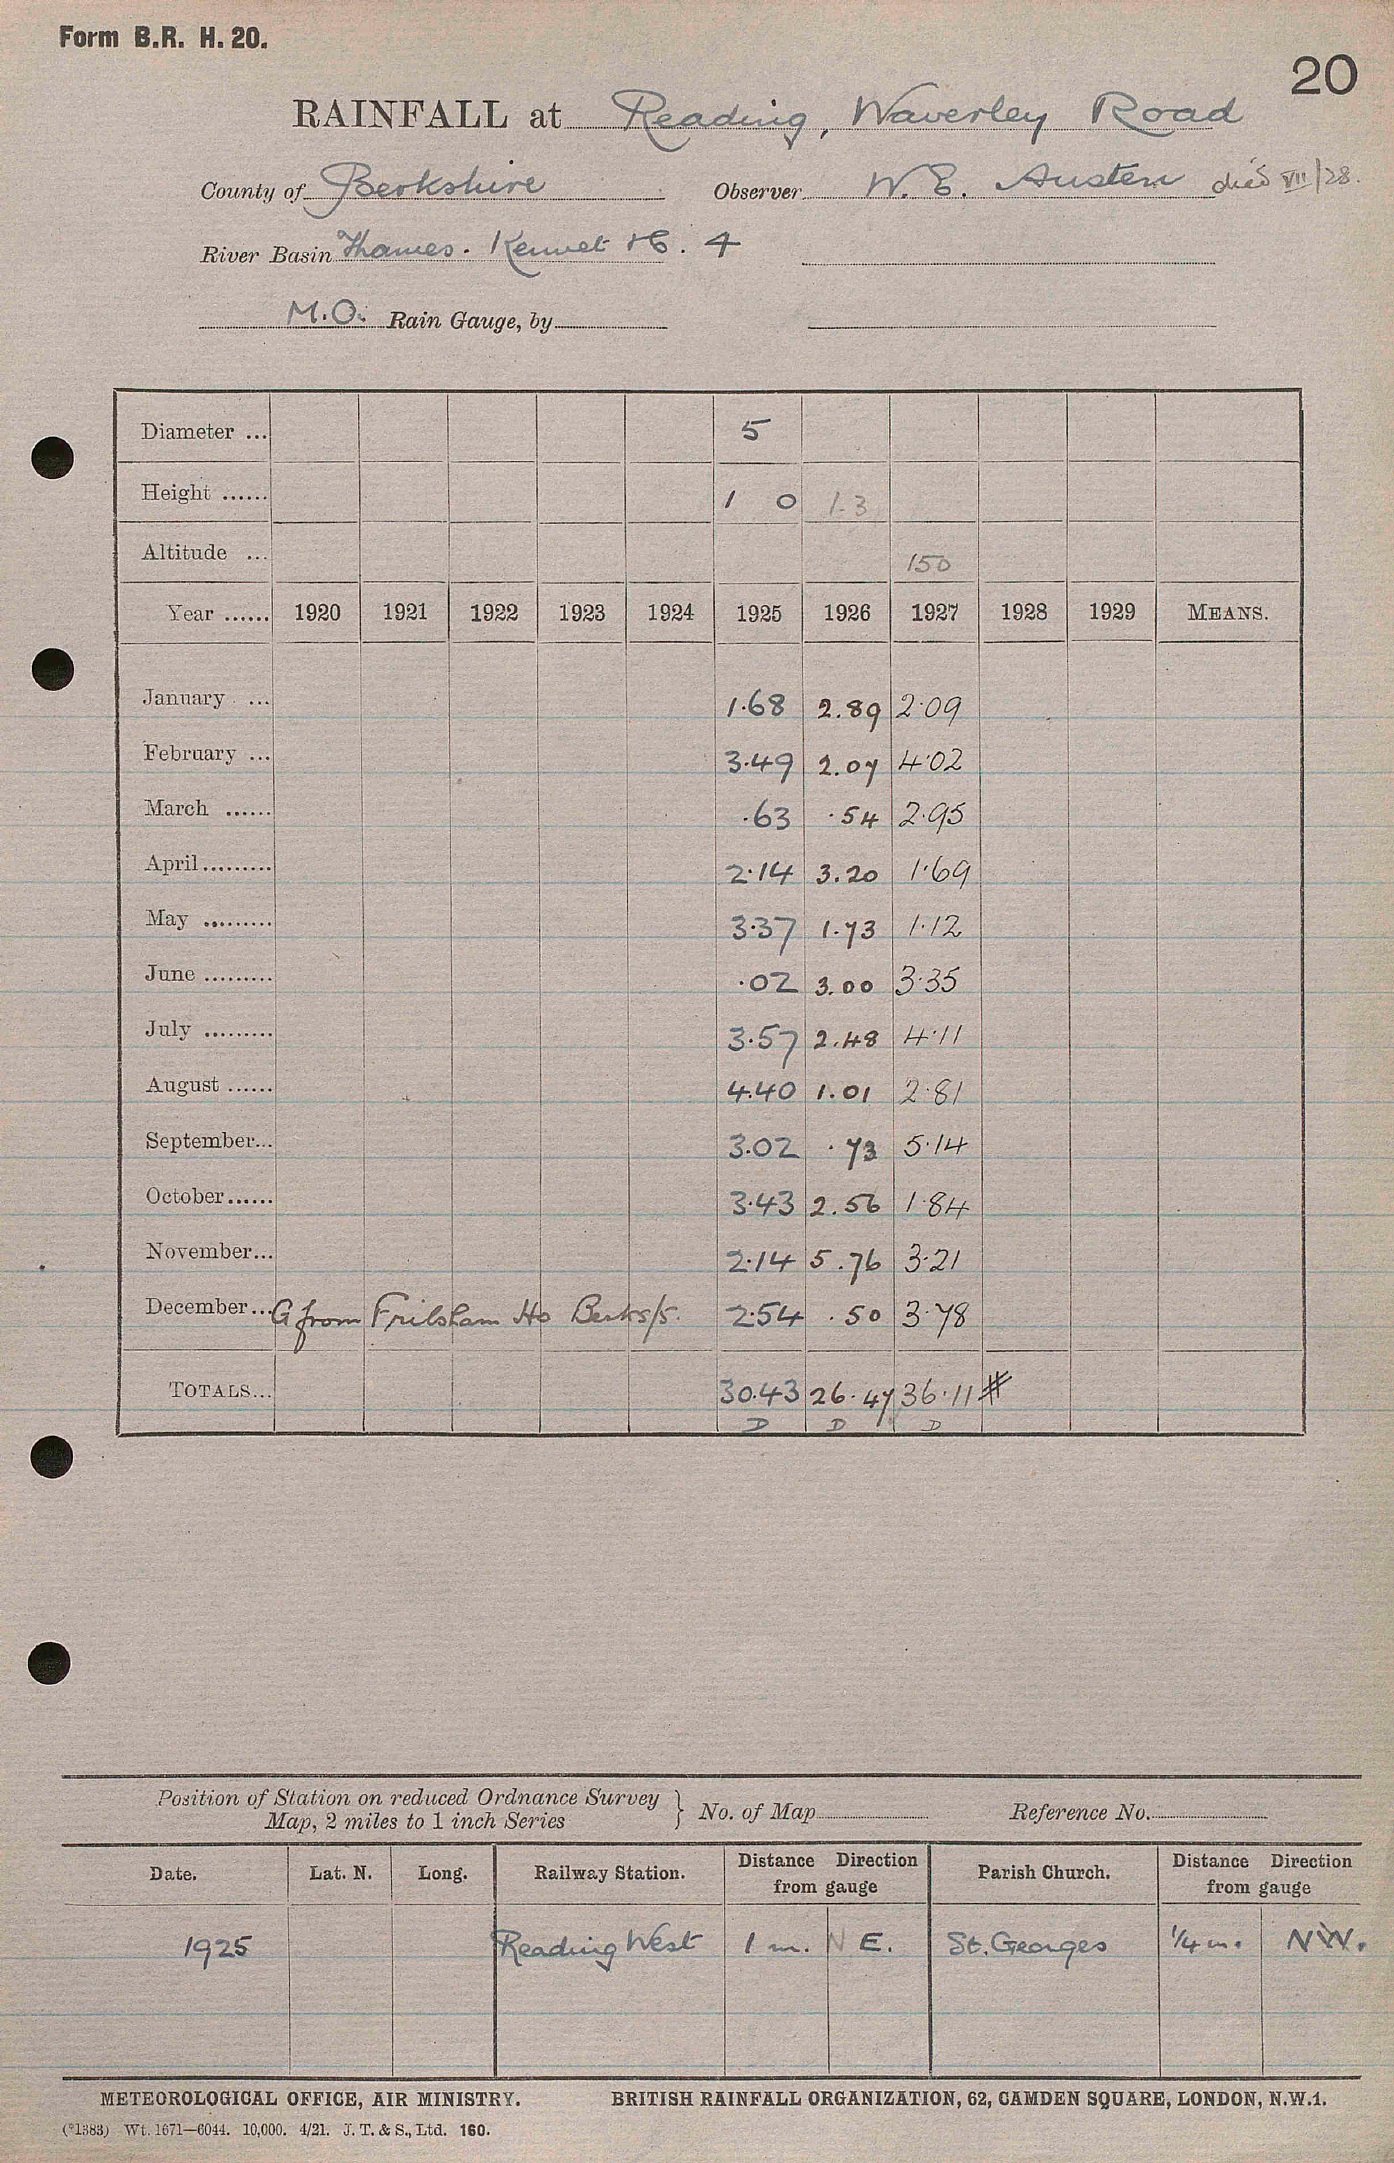 Form B.R. H. 20.
20
RAINFALL at Reading, Waverley Road
County of Berkshire Observer W. E. Austen died VII/28.
River Basin Thames. Kennet 4
M.O. Rain Gauge, by
Diameter ... 5
Height ...... 1 0 1-3
Altitude ... 150
Year ...... 1920 1921 1922 1923 1924 1925 1926 1927 1928 1929 MEANS.
January ... 1.68 2.89 2.09
February ... 3.49 2.07 4.02
March ...... .63 .54 2.95
April ......... 2.14 3.20 1.69
May ......... 3.37 1.73 1.12
June ......... .02 3.00 3.35
July ......... 3.57 2.48 4.11
August ...... 4.40 1.01 2.81
September... 3.02 .73 5.14
October ...... 3.43 2.56 1.84
November... 2.14 5.76 3.21
December... G from Frilsham Ho Berks/5. 2.54 .50 3.78
TOTALS... 30.43 26.47 36.11 #
D D D
Position of Station on reduced Ordnance Survey
Map, 2 miles to 1 inch Series } No. of Map Reference No.
Date. Lat. N. Long. Railway Station. Distance Direction from gauge Parish Church. Distance Direction from gauge
1925 Reading West 1 m. N E. St. Georges 1/4 m. NW.
METEOROLOGICAL OFFICE, AIR MINISTRY. BRITISH RAINFALL ORGANIZATION, 62, CAMDEN SQUARE, LONDON, N.W.1.
(*1383) Wt. 1671—6044. 10,000. 4/21. J. T. & S., Ltd. 160.